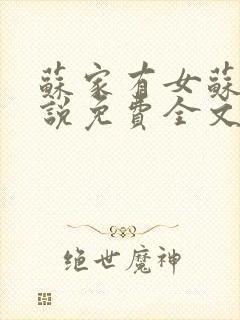 蘇家有女蘇
說免費全文
绝世魔神